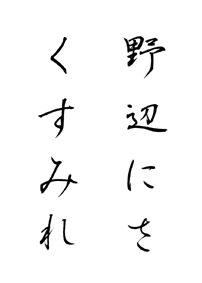 野辺にさ
くすみれ